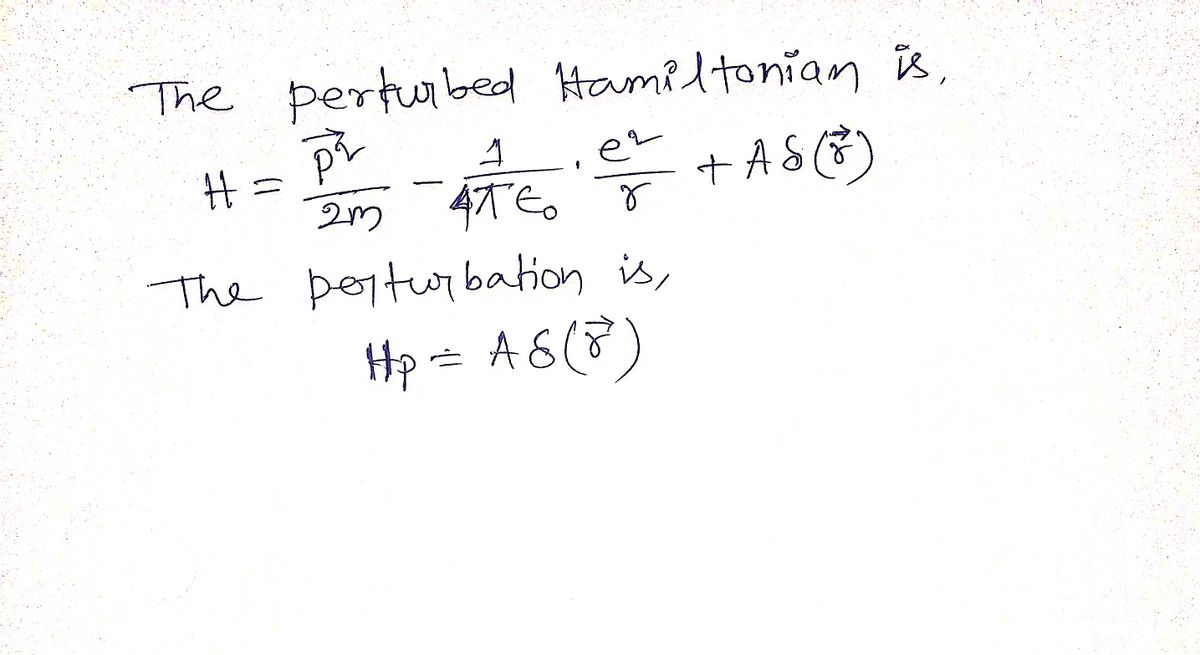 The perturbed Hamiltonian is,
H = p⃗²/2m − 1/4πϵ₀ · e²/r + Aδ(r⃗)
The perturbation is,
Hp = Aδ(r⃗)